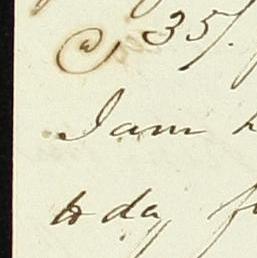 @ 35/.
I am
to day